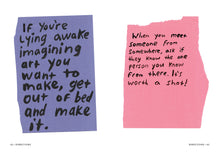 If you're
lying awake
imagining
art you
want to
make, get
out of bed
and make
it.
When you meet
someone from
somewhere, ask
if they know the
one person you know
from there. It's
worth a shot!